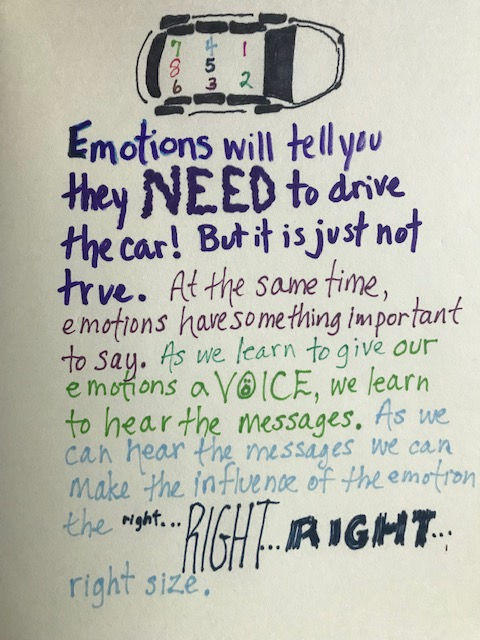 7 4 1
8 5
6 3 2
Emotions will tell you
they NEED to drive
the car! But it is just not
true. At the same time,
emotions have something important
to say. As we learn to give our
emotions a VOICE, we learn
to hear the messages. As we
can hear the messages we can
make the influence of the emotion
the right... RIGHT... RIGHT...
right size.